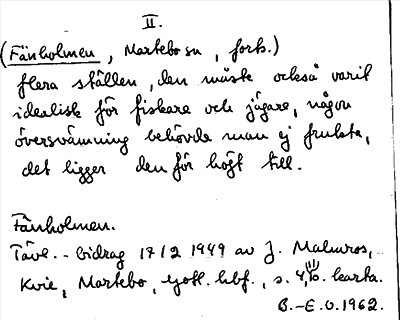 II.
(Fänholmen, Martebo sn, forts.)
flera ställen, den måste också varit
idealisk för fiskare och jägare, någon
översvämning behövde man ej frukta,
det ligger den för högt till.
Fänholmen.
Täve.-bidrag 17/2 1949 av J. Malmros,
Kvie, Martebo, Gotl. hbf., s. 4, karta.
B.-E.O. 1962.